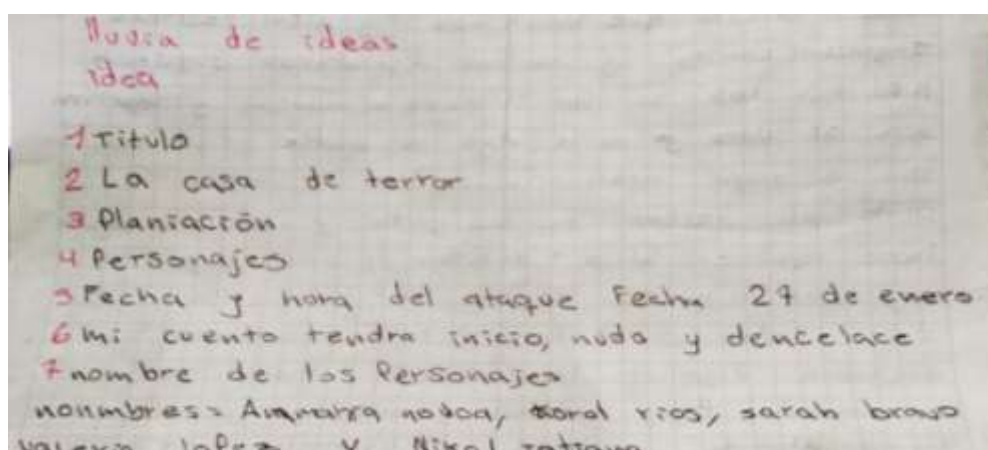 lluvia de ideas
idea
1 Titulo
2 La casa de terror
3 Planiación
4 Personajes
5 Fecha y hora del ataque Fecha 29 de enero
6 mi cuento tendra inicio, nudo y dencelace
7 nombre de los Personajes
nonmbres: rios, sarah bravo
lopez y Nikol